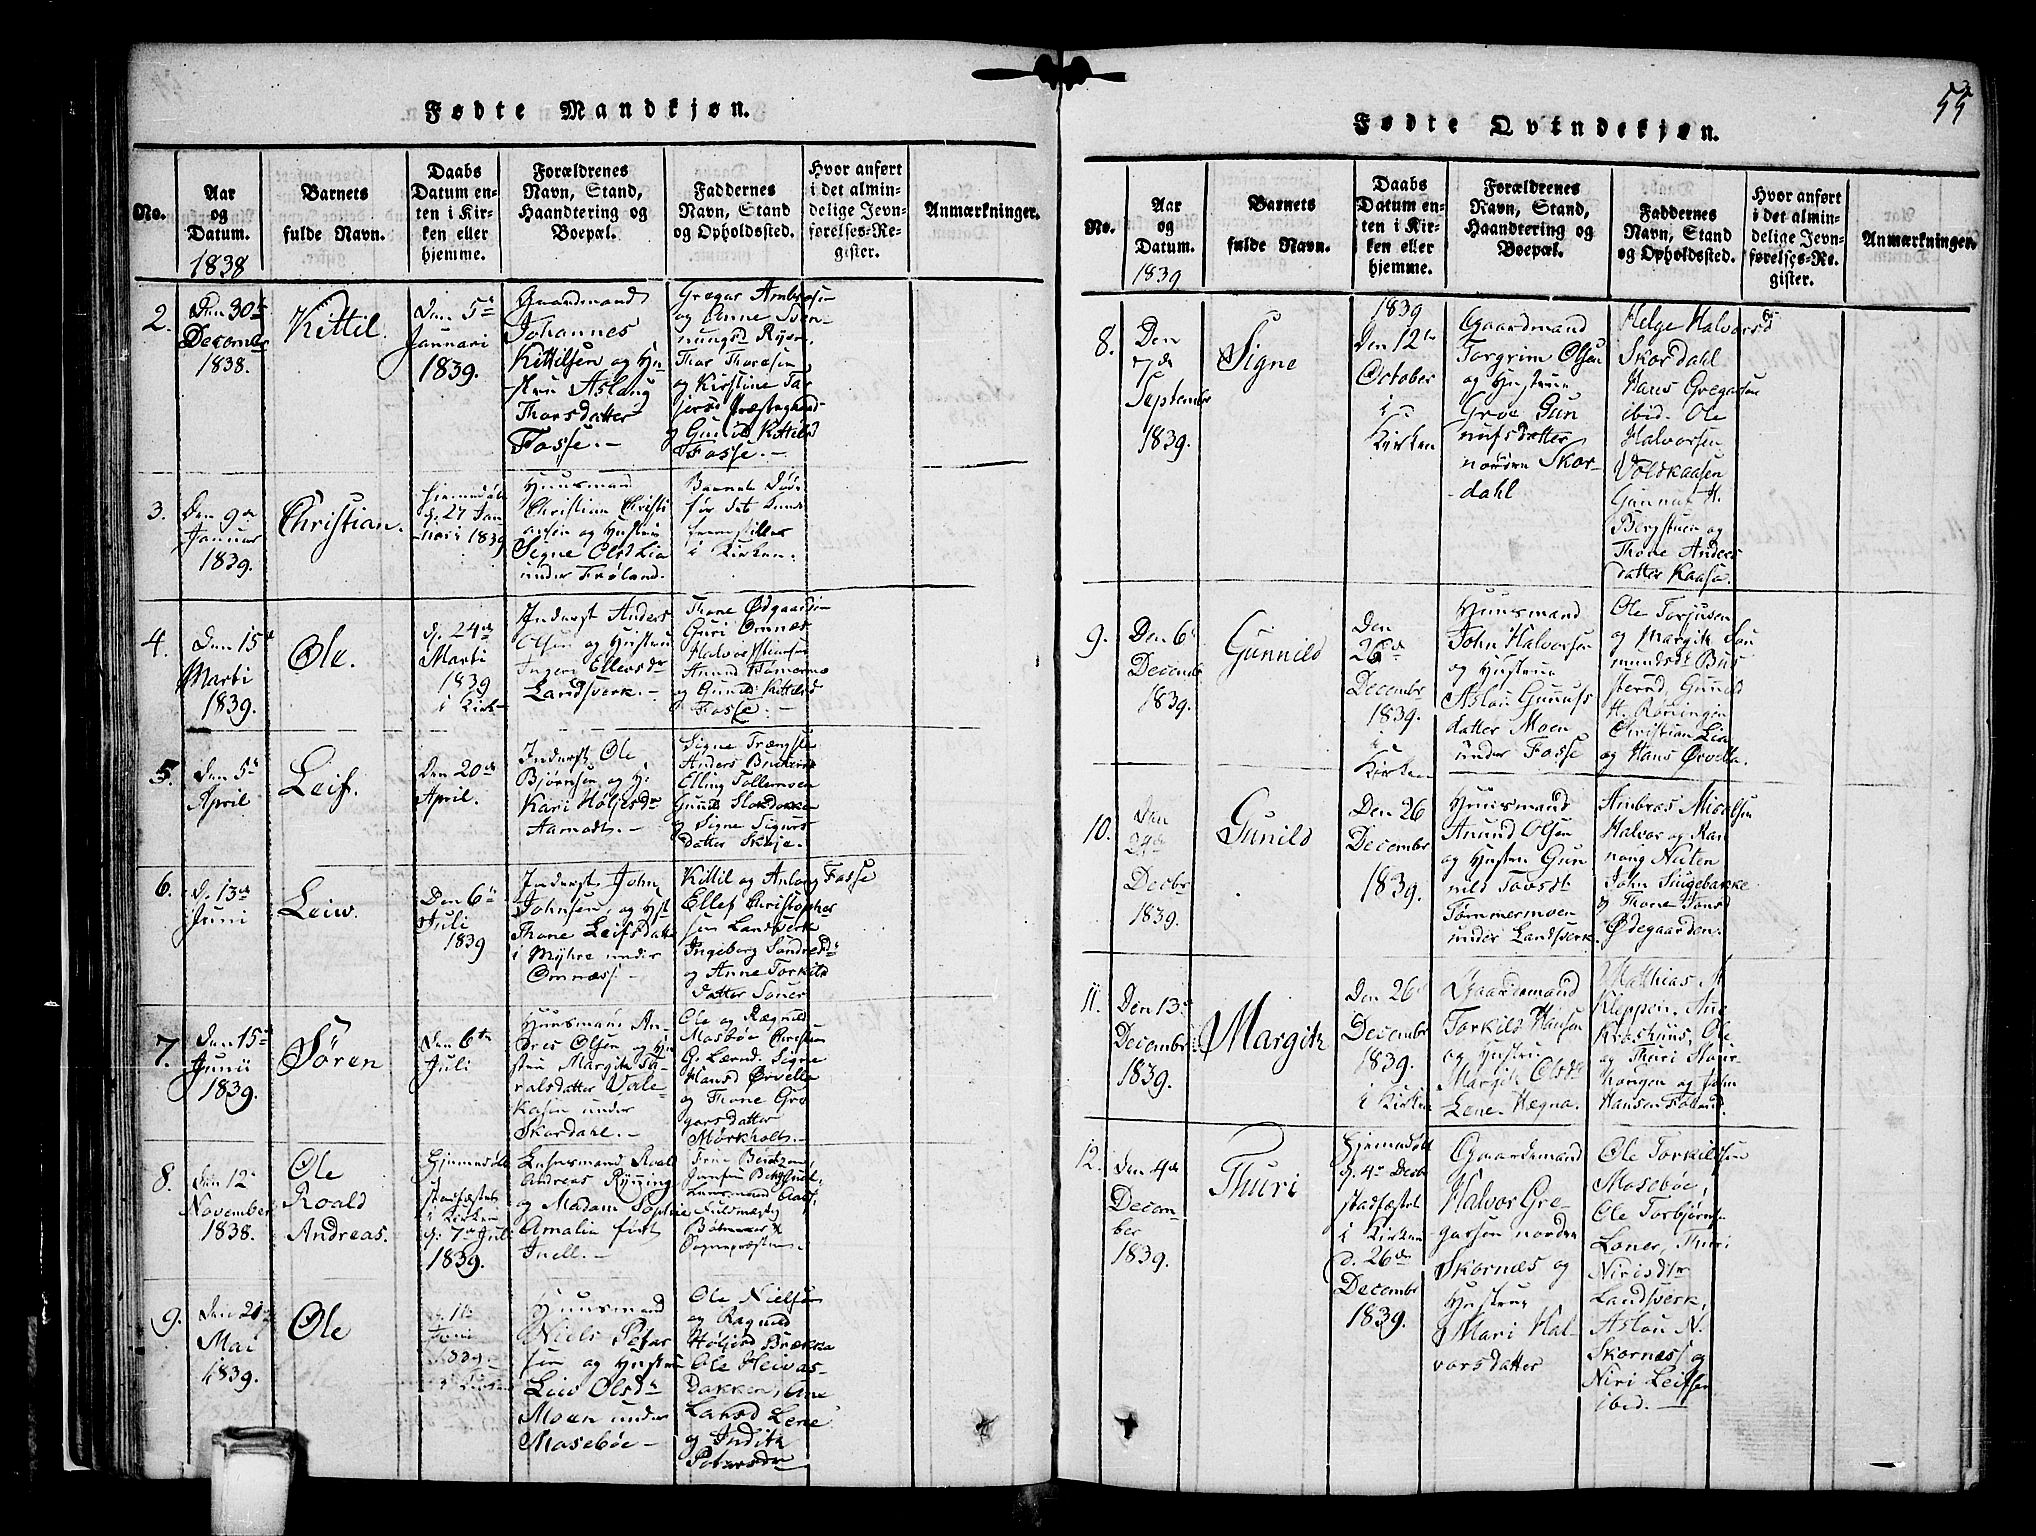 55
Fødte Mandkjøn.
No.
Aar
og
Datum.
1838
Barnets
fulde Navn.
Daabs
Datum en-
ten i Kir-
ken eller
hjemme.
Forældrenes
Navn, Stand,
Haandtering og
Boepæl.
Faddernes
Navn, Stand
og Opholdssted.
Hvor anført
i det almin-
delige Jevn-
førelses-Re-
gister.
Anmærkninger.
2.
Den 30te
December
1838.
Kittil.
Den 5te
Januari
1839.
Gaardmand
Johannes
Kittilsen og Hu-
stru Aslaug
Thorsdatter
Fosse.-
Gregar Ambrosen
og Anne Sven-
nungsd Ryen,
Thor Thoresen
og Kirstine Tar
jersd Præstegaard
og Gunild Kittilsd
Fosse.-
3.
Den 9de
Januar
1839.
Christian.
Hjemmedøbt
d. 27 Jan-
uari 1839
Huusmand
Christian Christi
ansen og Hustrue
Signe Olsd Lia
under Frøland.
Barnet døde
før det kunde
fremstilles
i Kirken.
4.
Den 15de
Marti
1839.
Ole.
d. 24de
Marti
1839
i Kirken
Inderst Anders
Olsen og Hustrue
Ingerd Ellevsdr
Landsverk.-
Thone Ødgaarden
Guri Omnæs
Halvor
Anund Tømermo
og Gunild Kittilsd
Fosse.-
5.
Den 5te
April
Leif.
Den 20de
April.
Inderst Ole
Bjørnsen og H.
Kari Høljesdr
Aarnodt.-
Signe
Anders
Elling Tollevmoen
Gunild
og Signe Sigurs
datter Skeje.-
6.
d. 13de
Juni
Leiw.
Den 6te
Juli
1839
Inderst John
Johnsen, og Hust
Thone Leifsdatter
i Myhre under
Omnæss.-
Kittil og Aslaug Fosse
Ellef Christopher
sen Landverk
Ingeborg Sondresd
og Anne Torkilds
datter Soner
7.
Den 15de
Junii
1839.
Sören
Den 6te
Juli
Huusmand An-
dres Olsen og Hu-
strue Margith Ta-
ralsdatter Vale-
Kasen under
Skordahl.-
Ole og Rægnild
Mosebøe Christen
G. Lernd. Signe
Hansd Ørvella
og Thone Gre
garsdatter
Mørkholt.-
8.
Den 12te
November
1838.
Ole
Roald
Andreas.
Hjemmedøbt
stadfæstet
i Kirken
d. 7de Juli
1839.
Lensmand Roald
Andreas Rynning
og Madam Sophie
Amalie født
Juell.-
Frue Bentzen,
Jomfru
Lensmand
Fuldmægtig
og
Sognepræsten.-
9.
Den 21de
Mai
1839.
Ole
Juni
1839
i Kirken
Huusmand
Niels Peter
sen og Hustrue
Leiw Olsdr
Moen under
Mosebøe-
Ole Nielsen
og Ragnild
Høljesd Brække
Ole Heivas-
Dakken, Ane
Larsd Lene
og Indith
Petersdr
Fødte Qvindekjøn.
No.
Aar
og
Datum.
1839
Barnets
fulde Navn.
Daabs
Datum en-
ten i Kir-
ken eller
hjemme.
Forældrenes
Navn, Stand,
Haandtering og
Boepæl.
Faddernes
Navn, Stand
og Opholdssted.
Hvor anført
i det almin-
delige Jevn-
førelses-Re-
gister.
Anmærkninger.
8.
Den
7de
September
1839.
Signe
1839
Den 12te
October
i
Kirken
Gaardmand
Torgrim Olsen
og Hustrue
Groe Gun
nufsdatter
nordre Skor-
dahl
Helge Halvorsd
Skordahl
Hans Gregarsen
ibid. Ole
Halvorsen
Voldkaasen
Gunnar H.
Bergstuen og
Thone Anders
datter Kaasa
9.
Den 6te
Decembr
1839.
Gunnild
Den
26de
Decembr
1839.
i
Kirken
Huusmand
John Halvorsen
og Hustrue
Aslau Gunnufs
datter Moen
under Fosse
Ole Torjusen
og Margith Sau
mundsdr Bus
sterud, Gunild
H. Rønningen
Christian Lia
og Hans Ørvella.
10.
Den
24de
Decbr
1839.
Gunild
Den 26
Decembr
1839.
Huusmand
Anund Olsen
og Hustru Gun
nild Tovsdr
Tømmermoen
under Landsverk.
Ambros Micalsen
Halvor og Ran
naug Nuten
John
og Thone Tonsd
Ødegaarden.
11.
Den 13de
Decembr
1839.
Margith
Den 26de
Decembr
1839.
i Kirken
Gaardsmand
Torkild Hansen
og Hustru
Margith Olsdr
Lene-Hægna.
Mathias A.
Kleppen, Ane
Krosshuus, Ole
og Thuri Mour-
hougen og John
Hansen Følund.
12.
Den 4de
Decem-
ber
1839.
Thuri
Hjemmedøbt
d. 4de Decbr
stadfæstet
i Kirken
d. 26de
Decembr
1839.
Gaardsmand
Halvor Gre-
garsen nordre
Skornæs og
Hustrue
Mari Hal-
vorsdatter
Ole Torkildsen
Mosebøe,
Ole Torbjørns.
Loner, Thuri
Nirisdtr
Landsverk,
Aslau N.
Skornæss og
Niri Leifsen
ibid.-